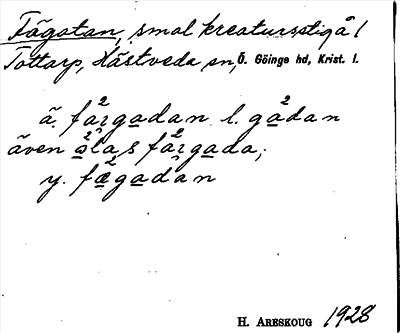 Fägatan, smal kreatursstig å l
Tottarp, Hästveda sn, Ö. Göinge hd, Krist. l.
ä. fargadan l. gadan
även olas fargada;
y. fægadan
H. ARESKOUG 1928